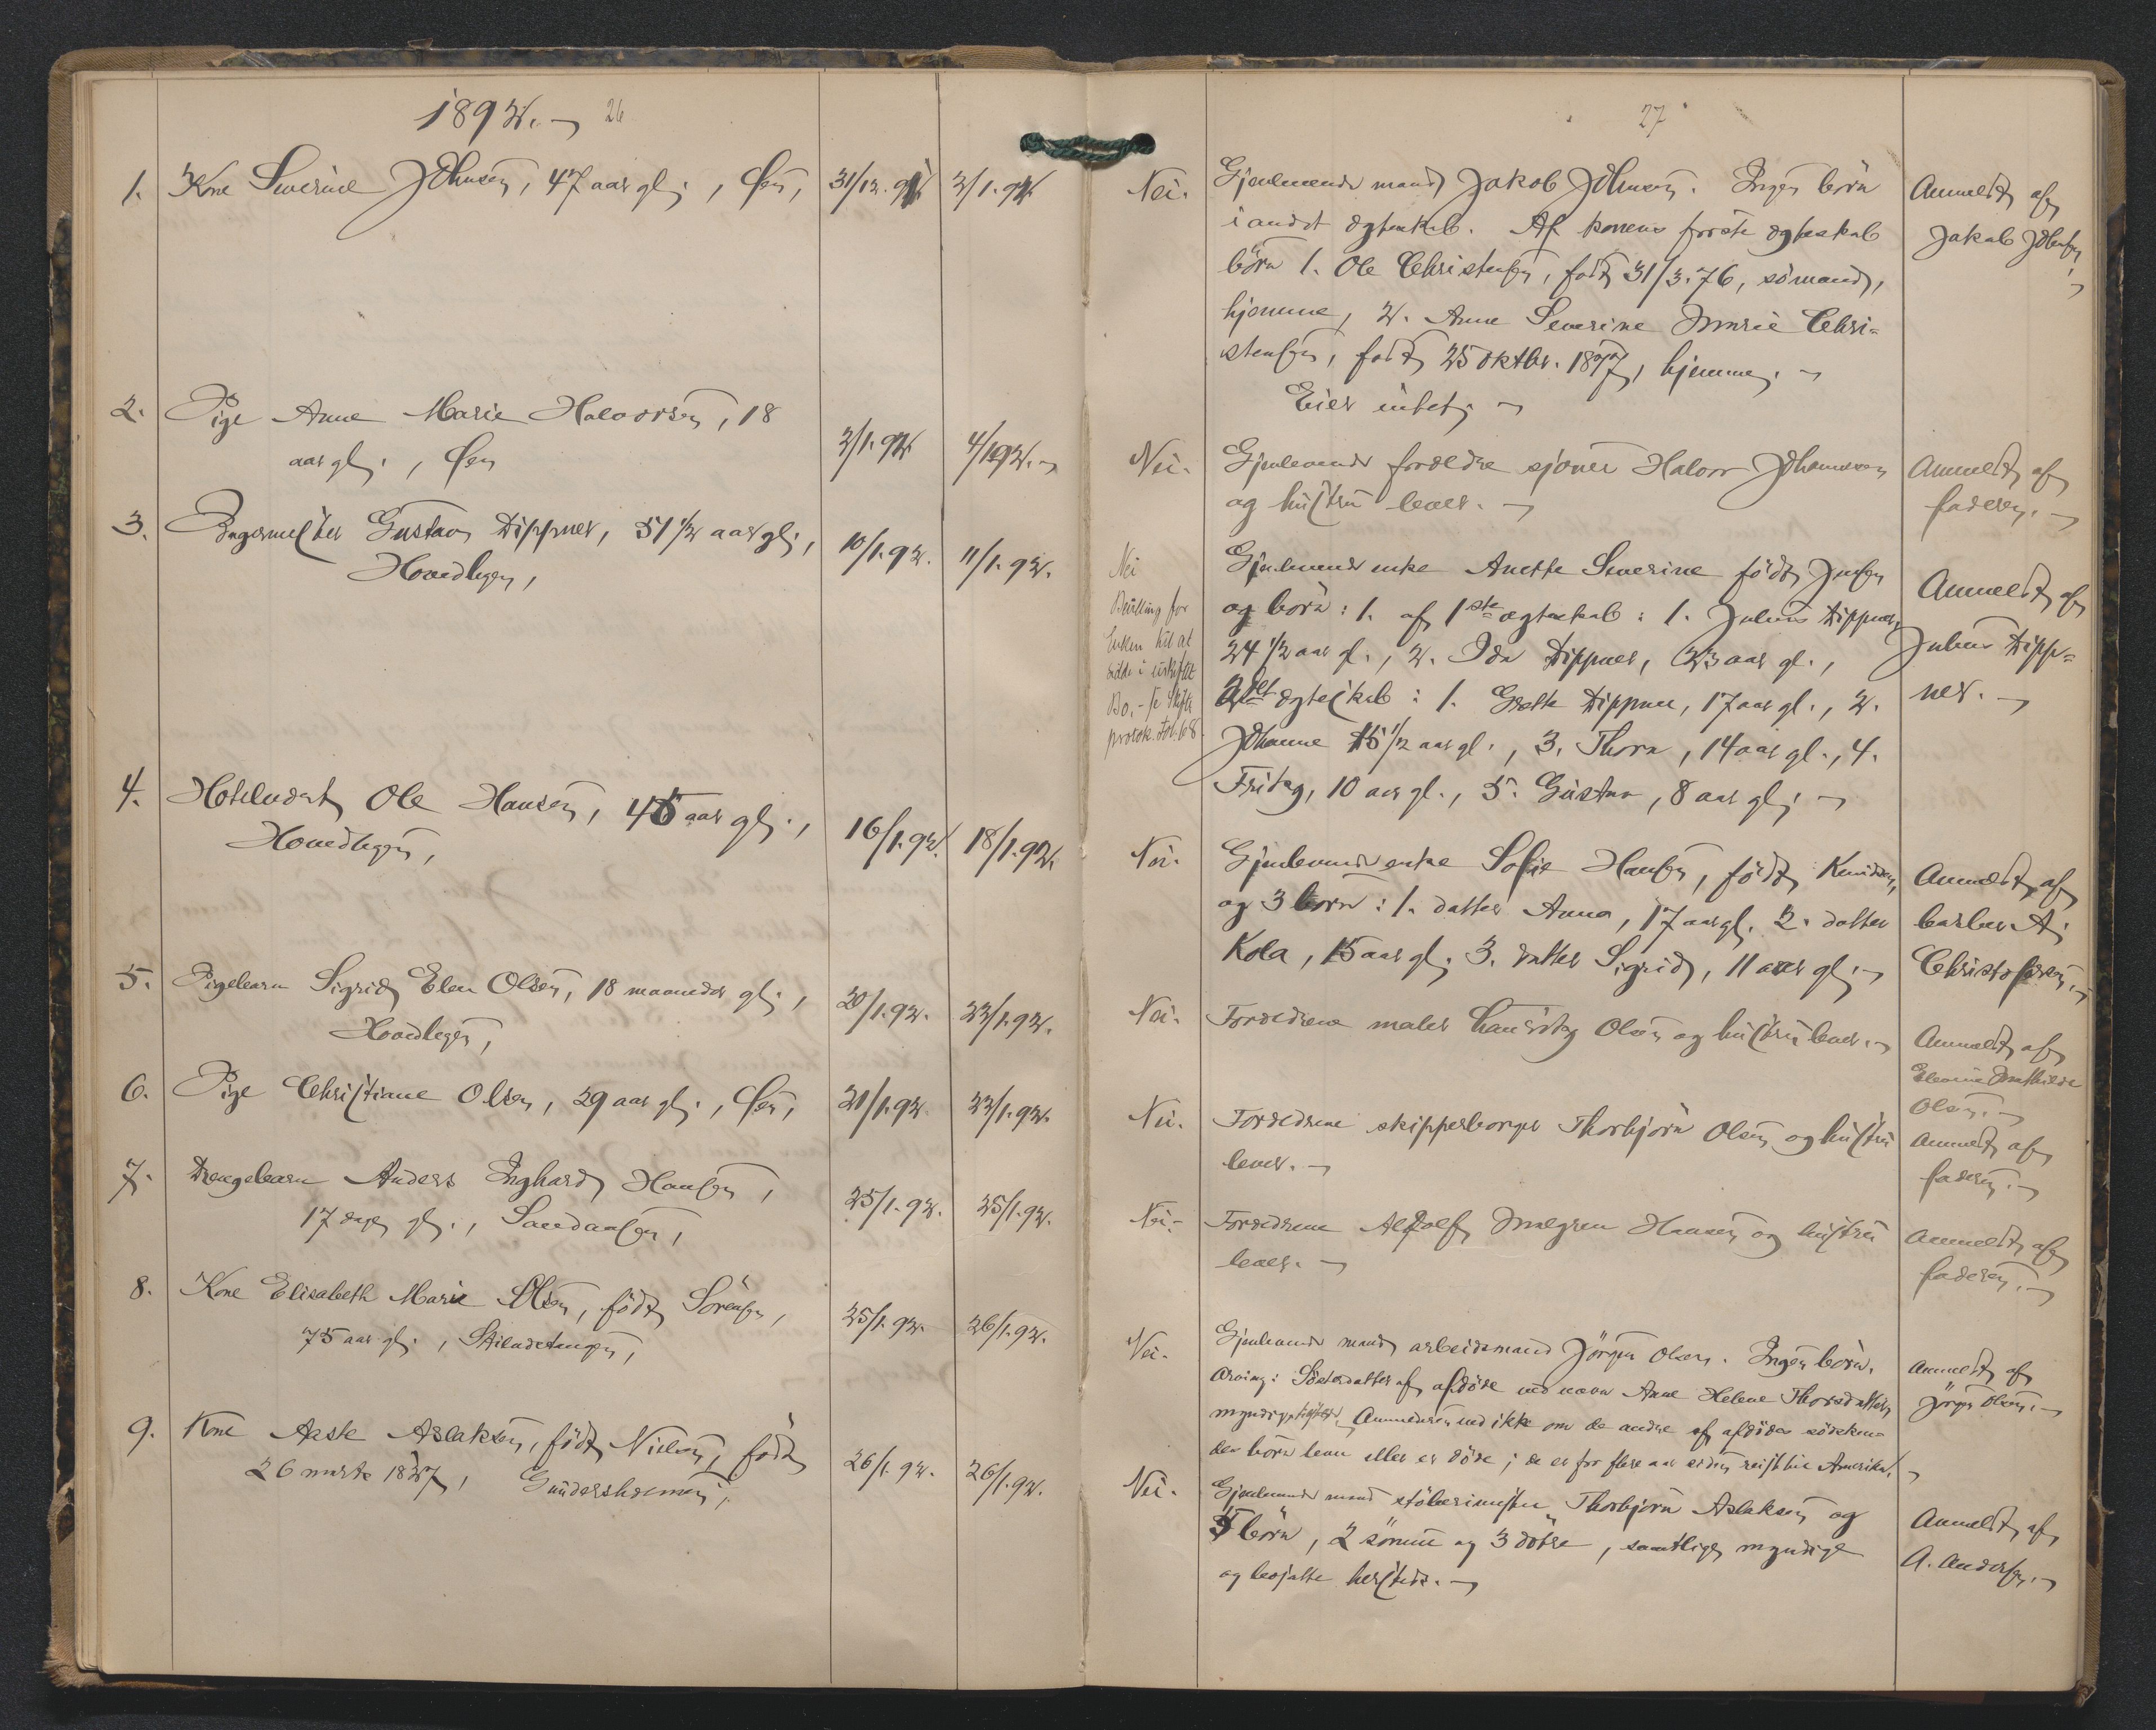 1892. 26
1. Kone Severine Johnsen, 47 aar gl., Øen, 31/12.91. 2/1.92.
2. Pige Anne Marie Halvorsen, 18 2/1.92 4/1 92.
aar gl., Øen
3. Bagermester Gustav Dippner, 51 1/2 aar gl., 10/1.92. 11/1.92.
4. Hotelvært Ole Hansen, 45 aar gl., 16/1.92. 18/1.92.
5. Pigebarn Sigrid Elen Olsen, 18 maaneder gl., 20/1.92. 22/1.92.
6. Pige Christiane Olsen, 29 aar gl., Øen, 21/1.92. 22/1.92.
7. Drengebarn Anders Inghard Hansen, 25/1.92. 25/1.92.
17 dage gl., Sandaasen,
8. Kone Elisabeth Marie Olsen, född Sörensen, 25/1.92. 26/1.92.
75 aar gl.,
9. Kone Aaste Aslaksen, född Nielsen, född 26/1.92. 26/1.92.
26 marts 1827,
27
Nei. Gjenlevende mand Jakob Johnsen. Ingen börn
i andet ægteskab. Af konens förste ægteskab
börn 1. Ole Christensen, född 31/3.76, sömand,
hjemme, 2. Anne Severine Marie Chri-
stensen, född 25 oktbr. 1877, hjemme.
Eier intet.
Anmeldt af
Jakob Johnsen
Nei. Gjenlevende forældre sjouer Halvor Johannesen
og hustru lever.
Anmeldt af
faderen.
Nei
Bevilling for
Enken til at
sidde i uskiftet
Bo, - se Skifte
protok. fol. 168.
Gjenlevende enke Anette Severine född Jensen
og börn: 1. af 1ste ægteskab: 1. Julius Dippner,
24 1/2 aar gl., 2. Ida Dippner, 23 aar gl.,
2det ægteskab: 1. Grethe Dippner, 17 aar gl., 2.
Johanne 15 1/2 aar gl., 3. Thora, 14 aar gl., 4.
10 aar gl., 5. Gustav, 8 aar gl.
Anmeldt af
Julius Dipp-
ner.
Nei. Gjenlevende enke Sofie Hansen, född Knudsen,
og 3 börn: 1. datter Anna, 17 aar gl. 2. datter
15 aar gl. 3. datter Sigrid, 11 aar gl.
Anmeldt af
barber A.
Christofersen.
Nei. Forældrene maler Olsen og hustru lever.
Anmeldt af
Mathilde
Olsen.
Nei. Forældrene skipperborger Thorbjörn Olsen og hustru
lever.
Anmeldt af
faderen.
Nei. Forældrene Hansen og hustru
lever.
Anmeldt af
faderen.
Nei. Gjenlevende mand arbeidsmand Jörgen Olsen. Ingen börn.
Arving: Södsterdatter af afdöde ved navn Anne Helene Thorsdatter,
myndig. Anmelderen ved ikke om de andre af afdödes södsken-
des börn lever eller er döde; de er for flere aar siden reist til Amerika.
Anmeldt af
Jörgen Olsen.
Nei. Gjenlevende mand Thorbjörn Aslaksen og
5 börn, 2 sönner og 3 dötre, samtlige myndige
og bosatte hersteds.
Anmeldt af
A. Andersen.